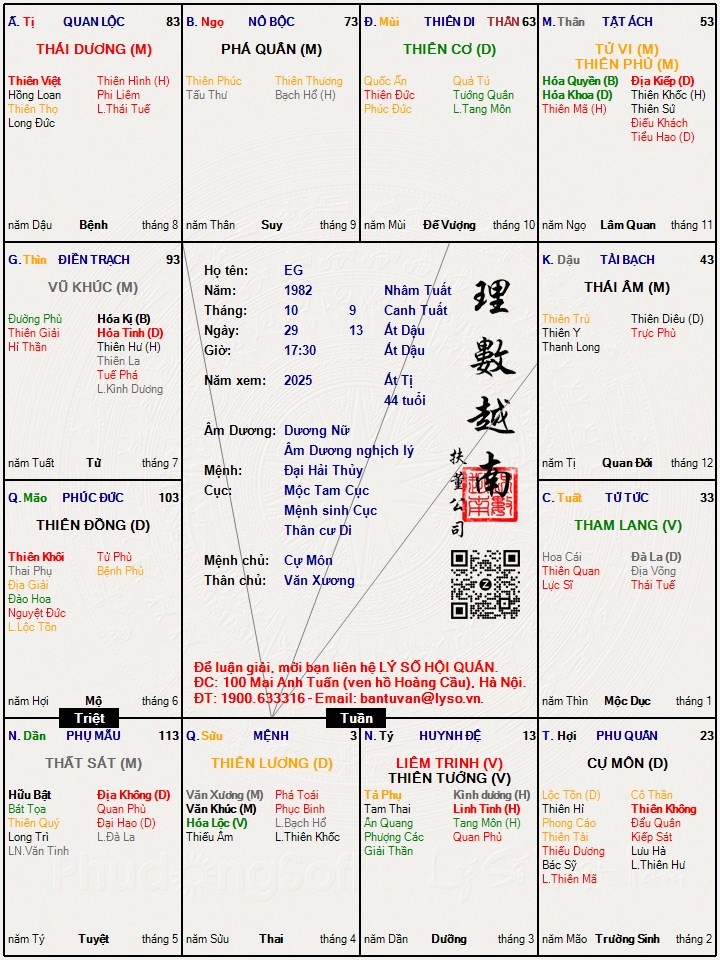 Ấ. Tị QUAN LỘC 83
THÁI DƯƠNG (M)
Thiên Việt Thiên Hình (H)
Hồng Loan Phi Liêm
Thiên Thọ L.Thái Tuế
Long Đức
năm Dậu Bệnh tháng 8
B. Ngọ NÔ BỘC 73
PHÁ QUÂN (M)
Thiên Phúc Thiên Thương
Tấu Thư Bạch Hổ (H)
năm Thân Suy tháng 9
Đ. Mùi THIÊN DI THÂN 63
THIÊN CƠ (D)
Quốc Ấn Quả Tú
Thiên Đức Tướng Quân
Phúc Đức L.Tang Môn
năm Mùi Đế Vượng tháng 10
M. Thân TẬT ÁCH 53
TỬ VI (M)
THIÊN PHỦ (M)
Hóa Quyền (B) Địa Kiếp (D)
Hóa Khoa (D) Thiên Khốc (H)
Thiên Mã (H) Thiên Sứ
Điếu Khách
Tiểu Hao (D)
năm Ngọ Lâm Quan tháng 11
G. Thìn ĐIỀN TRẠCH 93
VŨ KHÚC (M)
Đường Phù Hóa Kị (B)
Thiên Giải Hỏa Tinh (D)
Hỉ Thần Thiên Hư (H)
Thiên La
Tuế Phá
L.Kình Dương
năm Tuất Tử tháng 7
Họ tên: EG
Năm: 1982 Nhâm Tuất
Tháng: 10 9 Canh Tuất
Ngày: 29 13 Ất Dậu
Giờ: 17:30 Ất Dậu
Năm xem: 2025 Ất Tị
44 tuổi
Âm Dương: Dương Nữ
Âm Dương nghịch lý
Mệnh: Đại Hải Thủy
Cục: Mộc Tam Cục
Mệnh sinh Cục
Thân cư Di
Mệnh chủ: Cự Môn
Thân chủ: Văn Xương
理數越南
扶董公司
Để luận giải, mời bạn liên hệ LÝ SỐ HỘI QUÁN.
ĐC: 100 Mai Anh Tuấn (ven hồ Hoàng Cầu), Hà Nội.
ĐT: 1900.633316 - Email: bantuvan@lyso.vn.
K. Dậu TÀI BẠCH 43
THÁI ÂM (M)
Thiên Trù Thiên Diêu (D)
Thiên Y Trực Phù
Thanh Long
năm Tị Quan Đới tháng 12
Q. Mão PHÚC ĐỨC 103
THIÊN ĐỒNG (D)
Thiên Khôi Tử Phù
Thai Phụ Bệnh Phù
Địa Giải
Đào Hoa
Nguyệt Đức
L.Lộc Tồn
năm Hợi Mộ tháng 6
C. Tuất TỬ TỨC 33
THAM LANG (V)
Hoa Cái Đà La (D)
Thiên Quan Địa Võng
Lực Sĩ Thái Tuế
năm Thìn Mộc Dục tháng 1
Triệt
Tuần
N. Dần PHỤ MẪU 113
THẤT SÁT (M)
Hữu Bật Địa Không (D)
Bát Tọa Quan Phù
Thiên Quý Đại Hao (D)
Long Trì L.Đà La
LN.Văn Tinh
năm Tý Tuyệt tháng 5
Q. Sửu MỆNH 3
THIÊN LƯƠNG (D)
Văn Xương (M) Phá Toái
Văn Khúc (M) Phục Binh
Hóa Lộc (V) L.Bạch Hổ
Thiếu Âm L.Thiên Khốc
năm Sửu Thai tháng 4
N. Tý HUYNH ĐỆ 13
LIÊM TRINH (V)
THIÊN TƯỚNG (V)
Tả Phụ Kình dương (H)
Tam Thai Linh Tinh (H)
Ân Quang Tang Môn (H)
Phượng Các Quan Phủ
Giải Thần
năm Dần Dưỡng tháng 3
T. Hợi PHU QUÂN 23
CỰ MÔN (D)
Lộc Tồn (D) Cô Thần
Thiên Hỉ Thiên Không
Phong Cáo Đẩu Quân
Thiên Tài Kiếp Sát
Thiếu Dương Lưu Hà
Bác Sỹ L.Thiên Hư
L.Thiên Mã
năm Mão Trường Sinh tháng 2